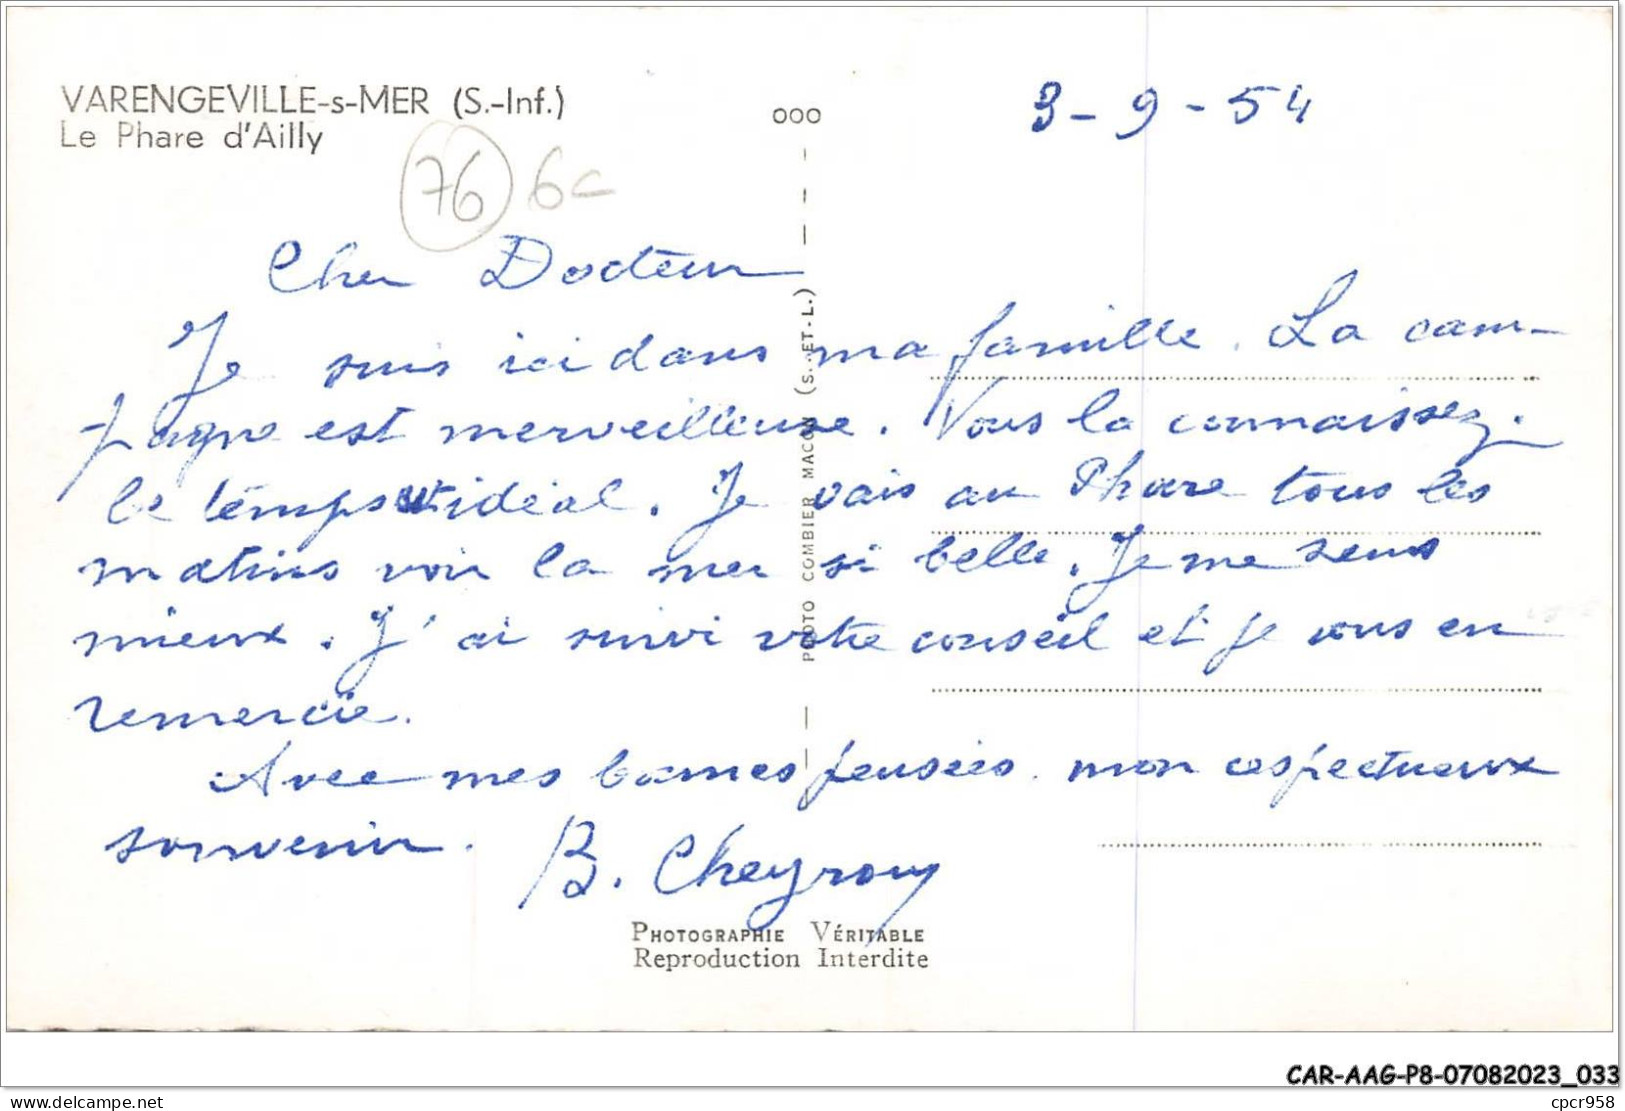 VARENGEVILLE-s-MER (S.-Inf.)
Le Phare d'Ailly
76 6c
000
3-9-54
Cher Docteur
Je suis ici dans ma famille. La cam-
pagne est merveilleuse. Vous la connaissez.
le temps est idéal. Je vais au Phare tous les
matins voir la mer si belle. Je me sens
mieux. J'ai suivi votre conseil et je vous en
remercie.
Avec mes bonnes pensées, mon respectueux
souvenir. B. Cheyrouy
PHOTO COMBIER MACON (S.-ET-L.)
PHOTOGRAPHIE VÉRITABLE
Reproduction Interdite
CAR-AAG-P8-07082023_033
www.delcampe.net
cpcr958